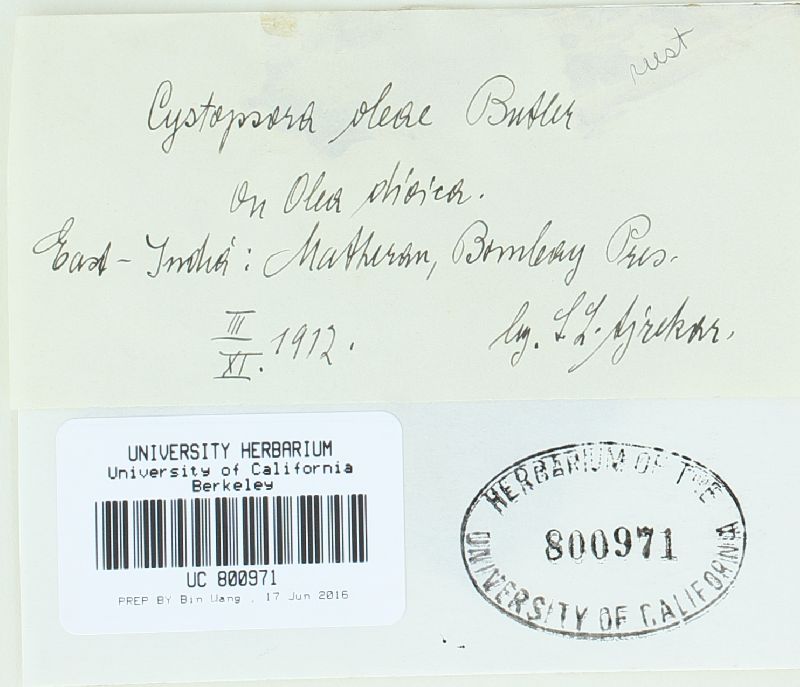 rust
Cystopsora oleae Butler
on Olea dioica.
East-India: Matheran, Bombay Pres.
III
XI. 1912.
leg. S. L. Ajrekar.
UNIVERSITY HERBARIUM
University of California
Berkeley
UC 800971
PREP BY Bin Wang , 17 Jun 2016
HERBARIUM OF THE
800971
UNIVERSITY OF CALIFORNIA